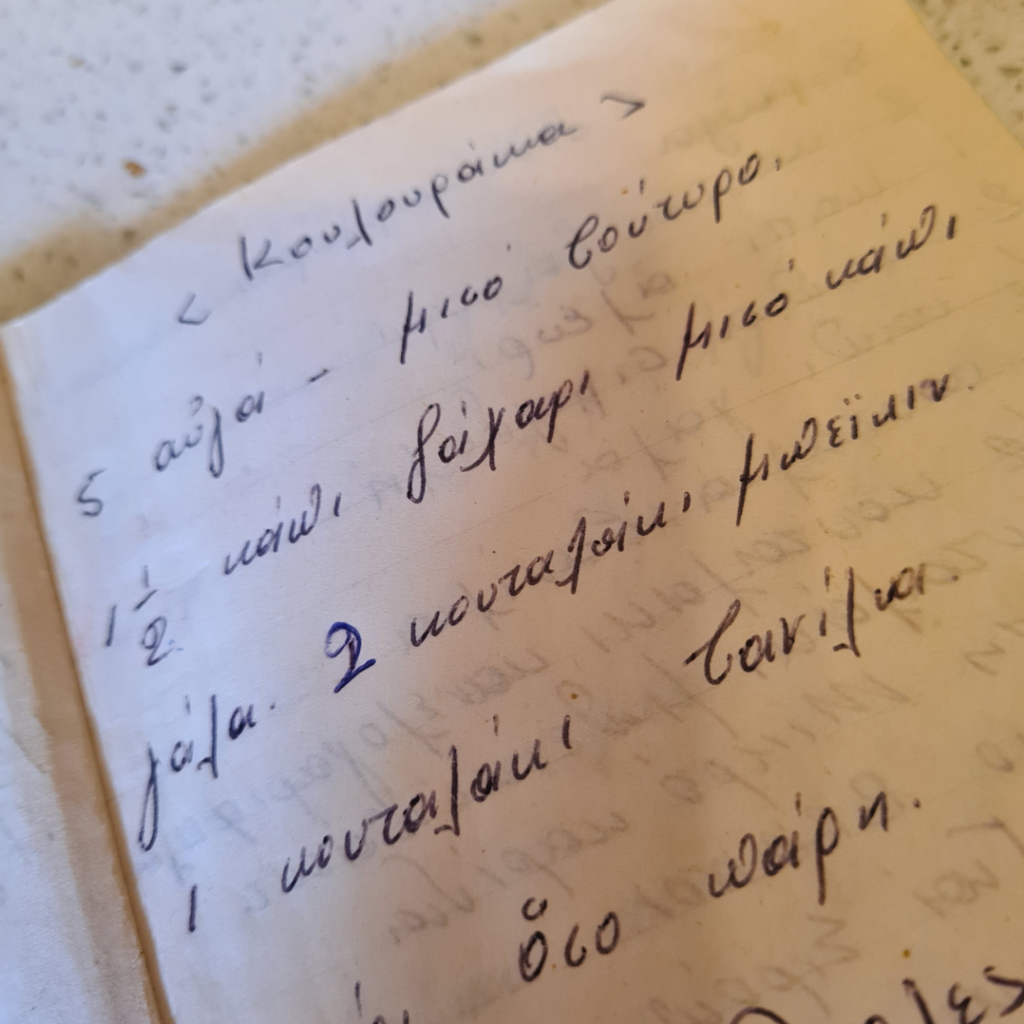 < Κουλουράκια >
5 αὐγά - μισό βούτυρο.
1 1/2 κάπι ζάχαρι μισό κάπι
γάλα. 2 κουταλάκι μπέϊκιν.
1 κουταλάκι βανίλια.
ὅσο πάρη.